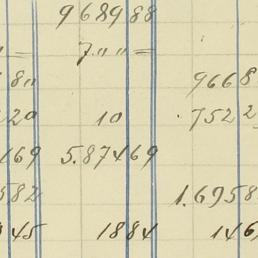 968988
7"" =
8" 9668
20 10 7522
169 5.87469
582 1.6958
345 1884 146